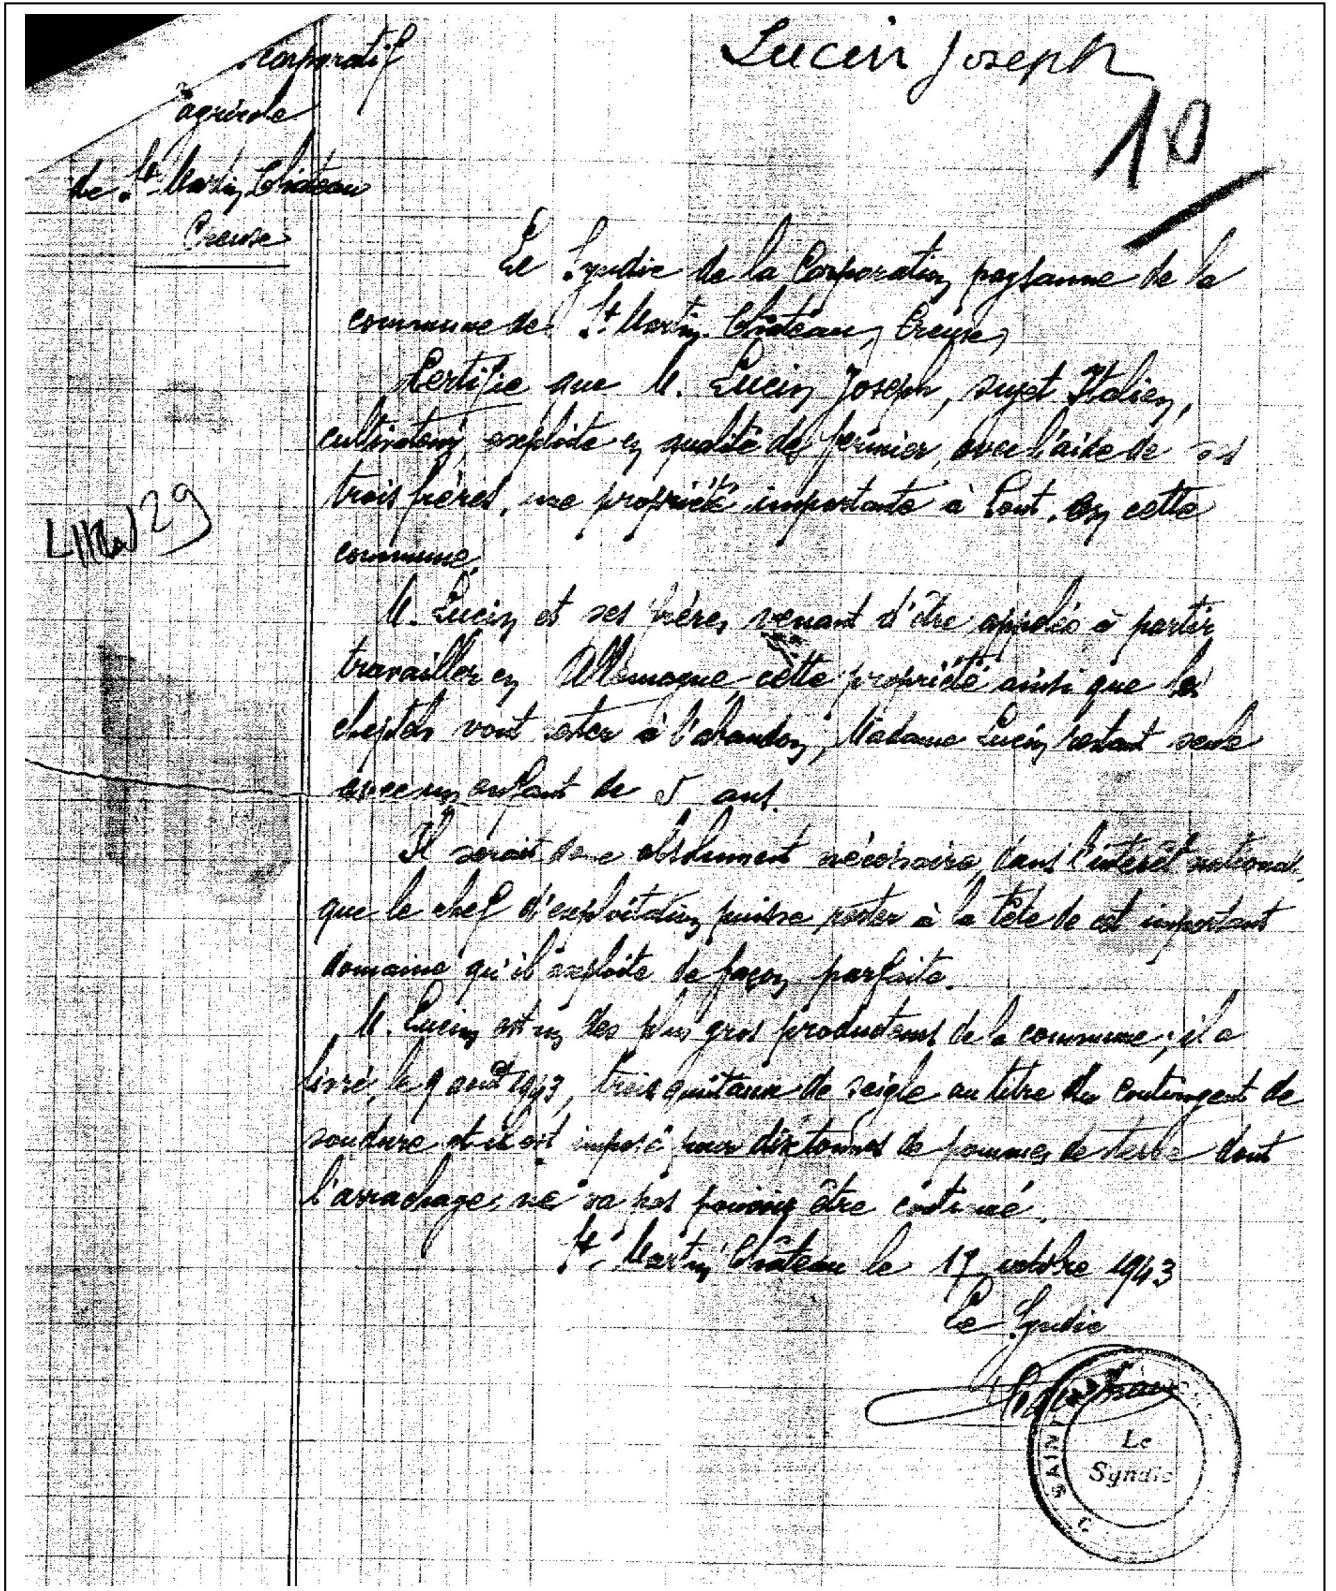 Corporatif
agricole
de St Martin Château
Creuse
Lucin Joseph
10
Le Syndic de la Corporation paysanne de la
commune de St Martin-Château, Creuse,
Certifie que M. Lucin Joseph, sujet Italien,
cultivateur, exploite en qualité de fermier, avec l'aide de ses
trois frères, une propriété importante à Lont, en cette
commune.
29
M. Lucin et ses frères venant d'être appelés à partir
travailler en Allemagne cette propriété ainsi que les
cheptels vont rester à l'abandon, Madame Lucin restant seule
avec un enfant de 5 ans.
Il serait donc absolument nécessaire, dans l'intérêt national,
que le chef d'exploitation puisse rester à la tête de cet important
domaine qu'il exploite de façon parfaite.
M. Lucin est un des plus gros producteurs de la commune ; il a
livré, le 9 août 1943, trois quintaux de seigle au titre du contingent de
soudure et il est imposé pour dix tonnes de pommes de terre dont
l'arrachage ne va pas pouvoir être continué.
St Martin Château le 17 octobre 1943
Le Syndic
SAINT
Le
Syndic